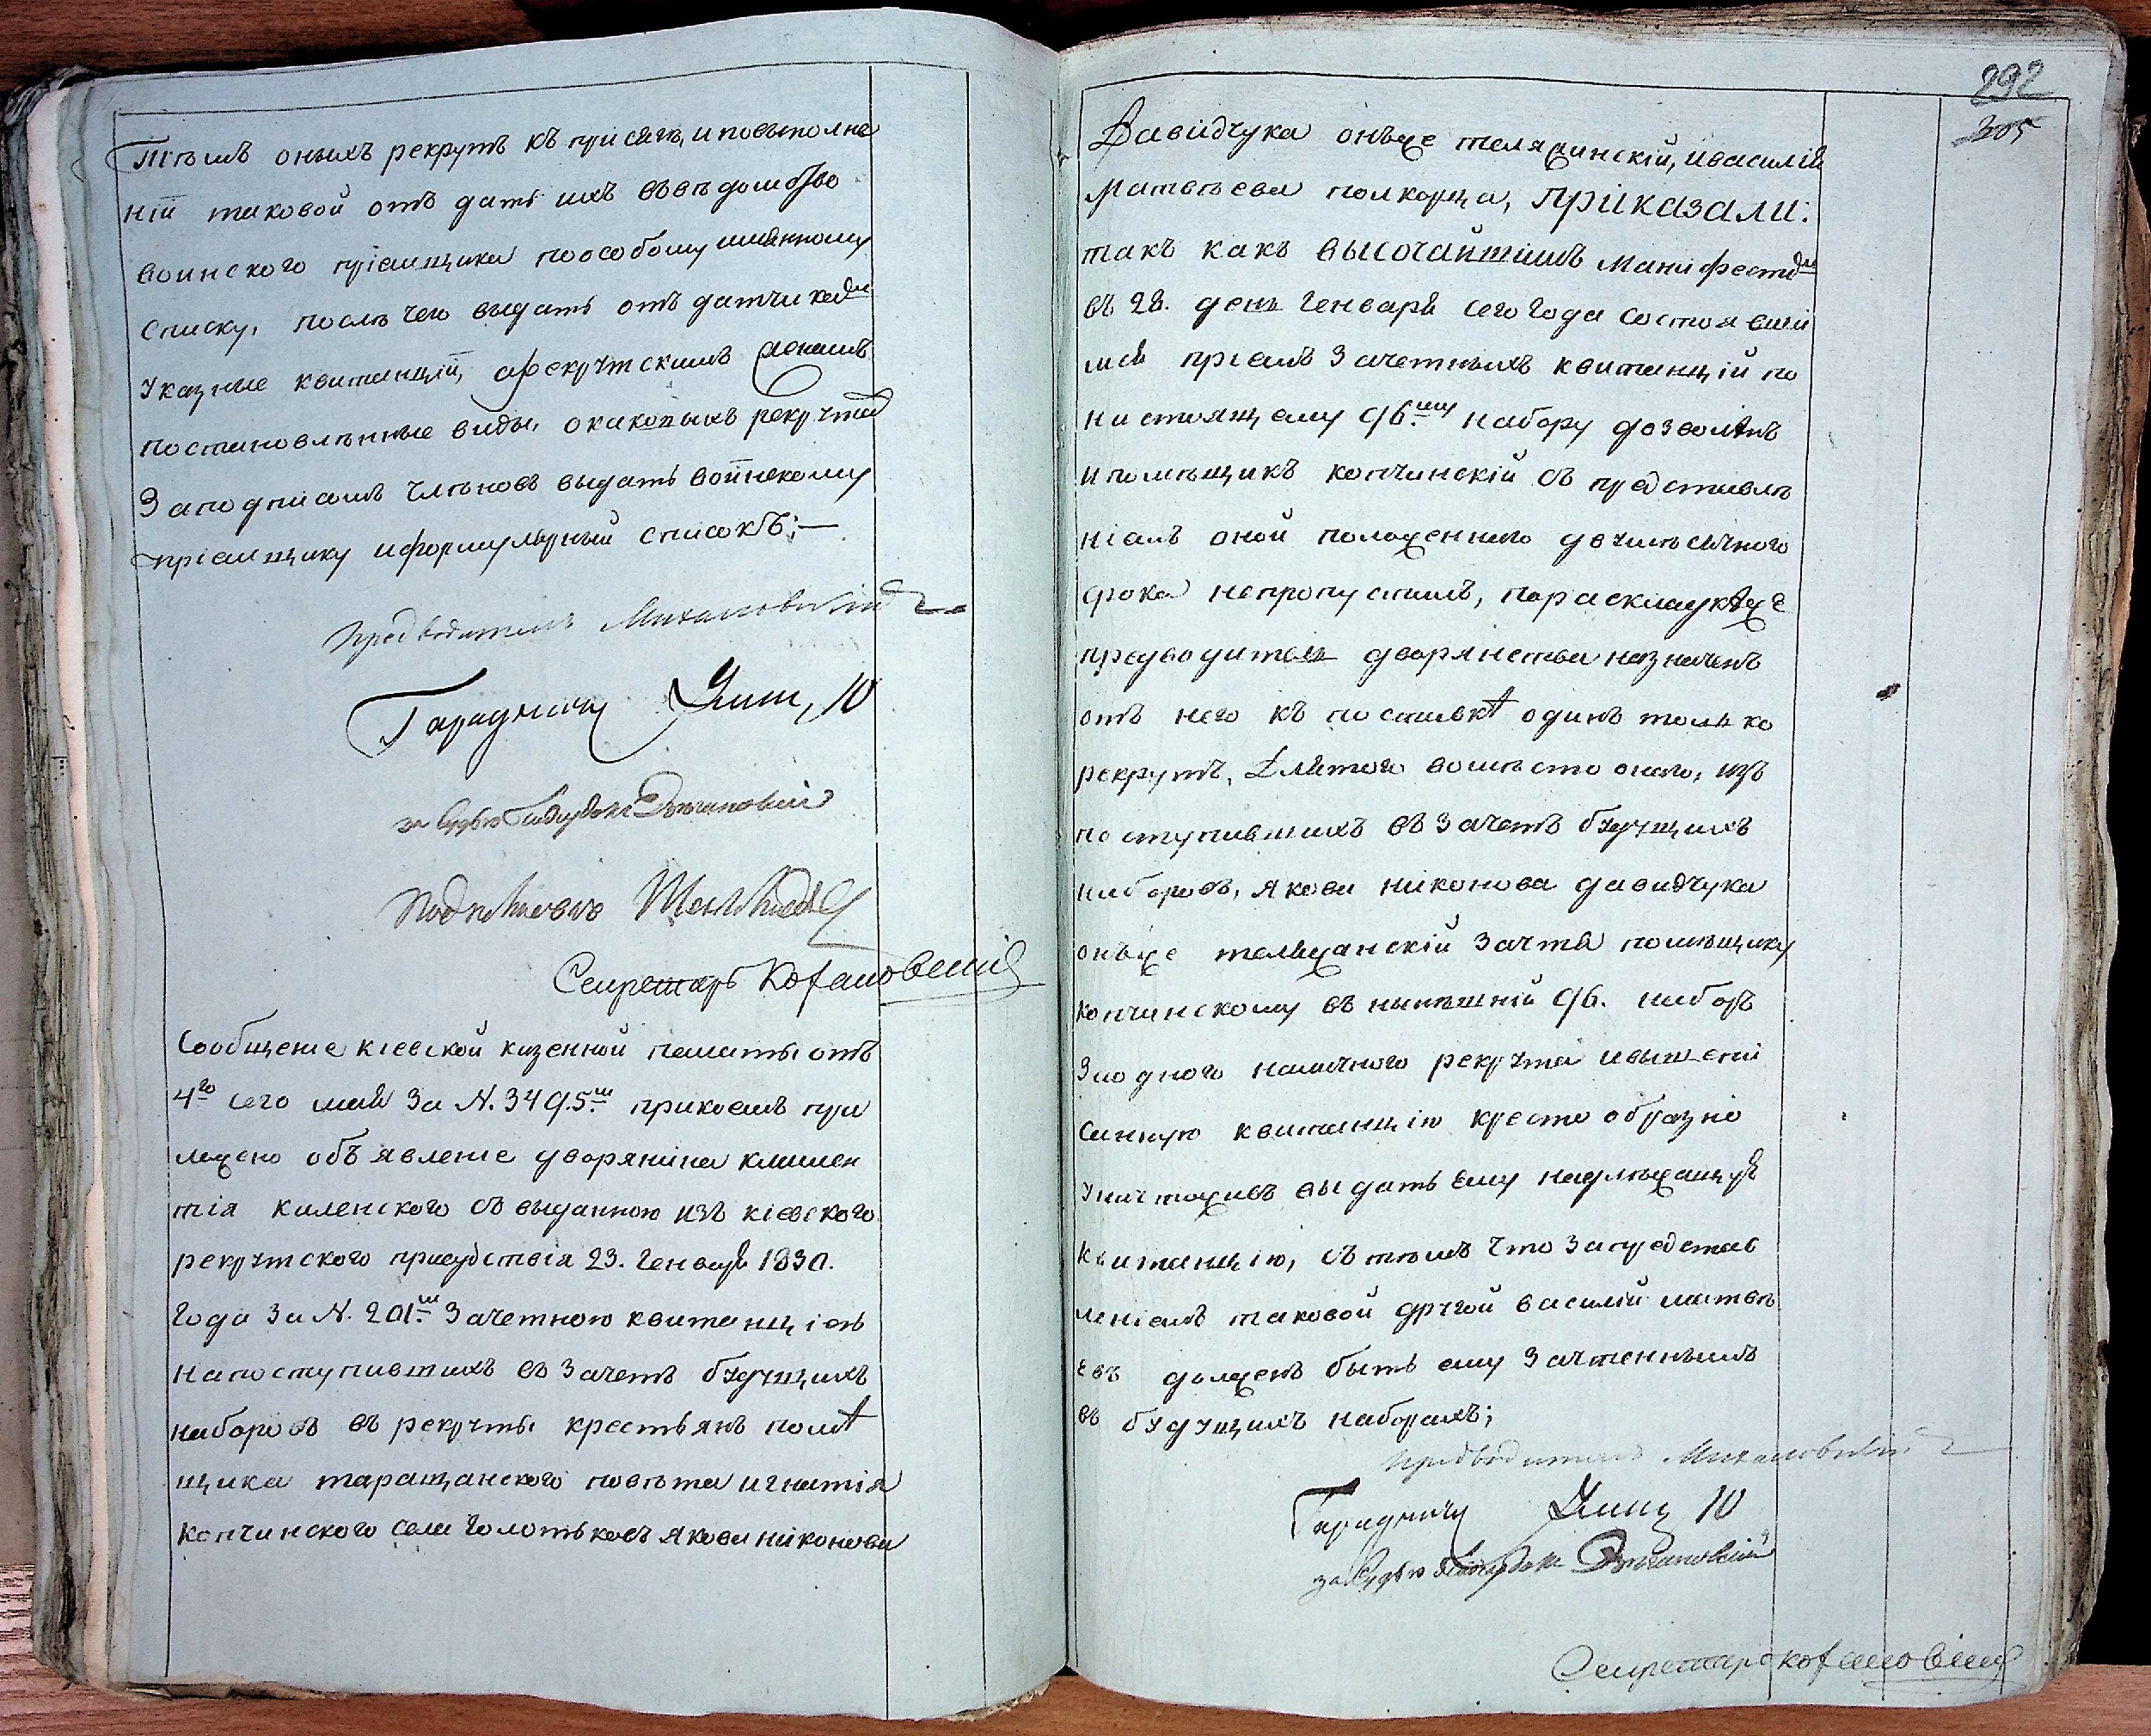 тѣмъ оныхъ рекрутъ къ присягѣ, и повыполне
ніи таковой отъ дать ихъ въвѣдомство
воинского пріемщика поособому имянному
списку, послѣ чего выдать отъ датчикамъ
указные квитанціи, арекрутскимъ женамъ
постановлѣнные виды, окаковыхъ рекрутъ
Заподписомъ члѣновъ выдать воинскому
пріемщику иформулярный списокъ;—
Предводитель Михаловскій
Городничий
за Судью Подсудокъ
Подполковникъ
Секретарь
Сообщеніе кіевской казенной палаты отъ
4го сего мая За N. 3495.м прикоемъ при
ложено объявленіе дворянина климен
тія каленского съ выданною изъ кіевского
рекрутского присудствія 23. Генваря 1830.
Года За N. 201м Зачетною квитанціею
напоступившихъ въ Зачетъ будущихъ
наборовъ въ рекруты крестьянъ помѣ
щика таращанского повѣта игнатія
копчинского села Голотьковъ якова никонова
292
305
Давидчука онъже теляжинскій, ивасилія
Матвѣева полкорца, Приказали:
такъ какъ высочайшимъ манифестомъ
въ 28. день Генваря сего Года состоявши
мся пріемъ Зачетныхъ квитанцій по
настоящему 96.му набору дозволенъ
ипомѣщикъ копчинскій съ представлѣ
ніемъ оной положенного двумѣсячного
срока непропустилъ, пораскладкѣже
предводителя дворянства назначенъ
отъ него къ поставкѣ одинъ только
рекрутъ, Длятого вомѣсто оного, изъ
поступившихъ въ Зачетъ будущихъ
наборовъ, якова никонова давидчука
онъже теляжанскій Зачтя помѣщику
копчинскому въ нынѣшній 96. наборъ
Заодного наличного рекрута ивышепи
санную квитанцію крестообразно
уничтоживъ выдать ему надлѣжащую
квитанцію, съ тѣмъ что Запредстав
леніемъ таковой другой василій матвѣ
евъ должевъ быть ему Зачтеннымъ
въ будущихъ наборахъ;
Предводитель Михаловскій
Городничий
за Судью Подсудокъ
Секретарь